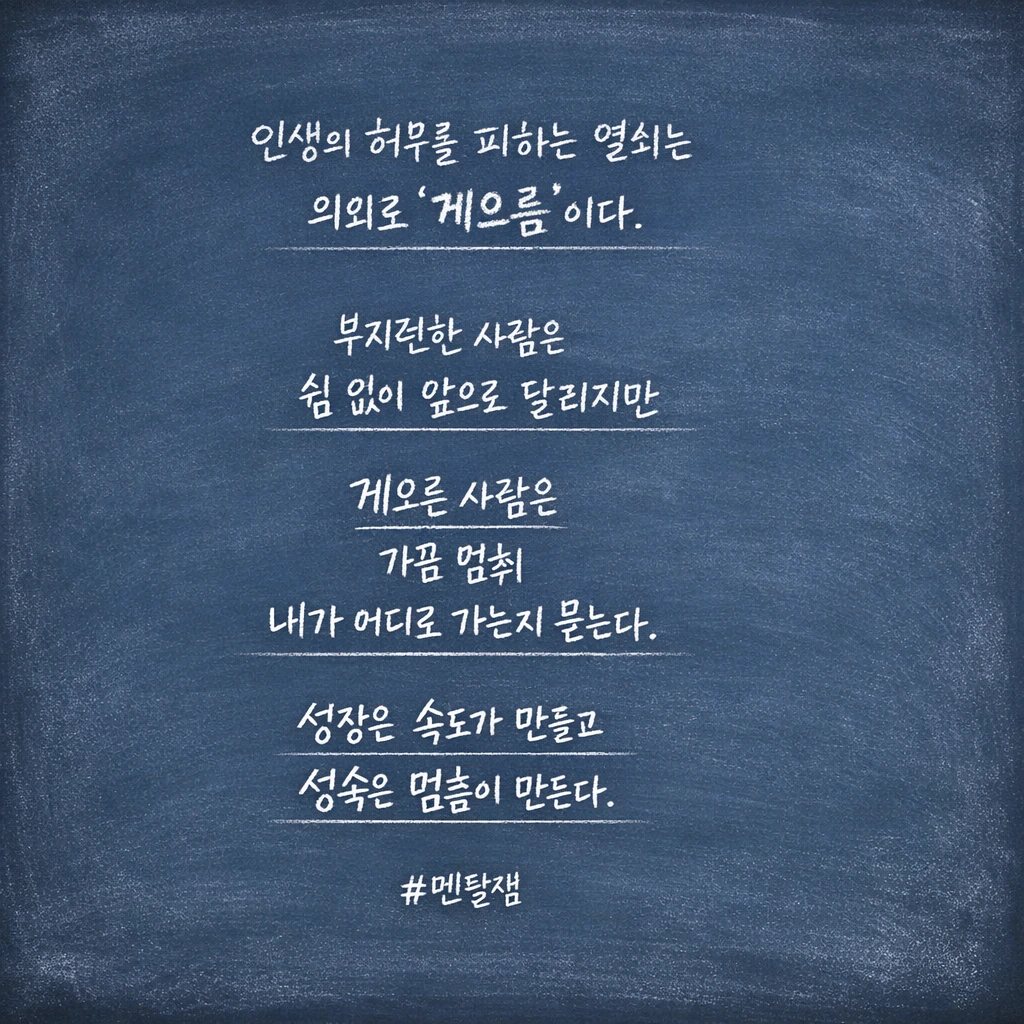 인생의 허무를 피하는 열쇠는
의외로 ‘게으름’이다.
부지런한 사람은
쉼 없이 앞으로 달리지만
게오른 사람은
가끔 멈춰
내가 어디로 가는지 묻는다.
성장은 속도가 만들고
성숙은 멈츰이 만든다.
#멘탈잼